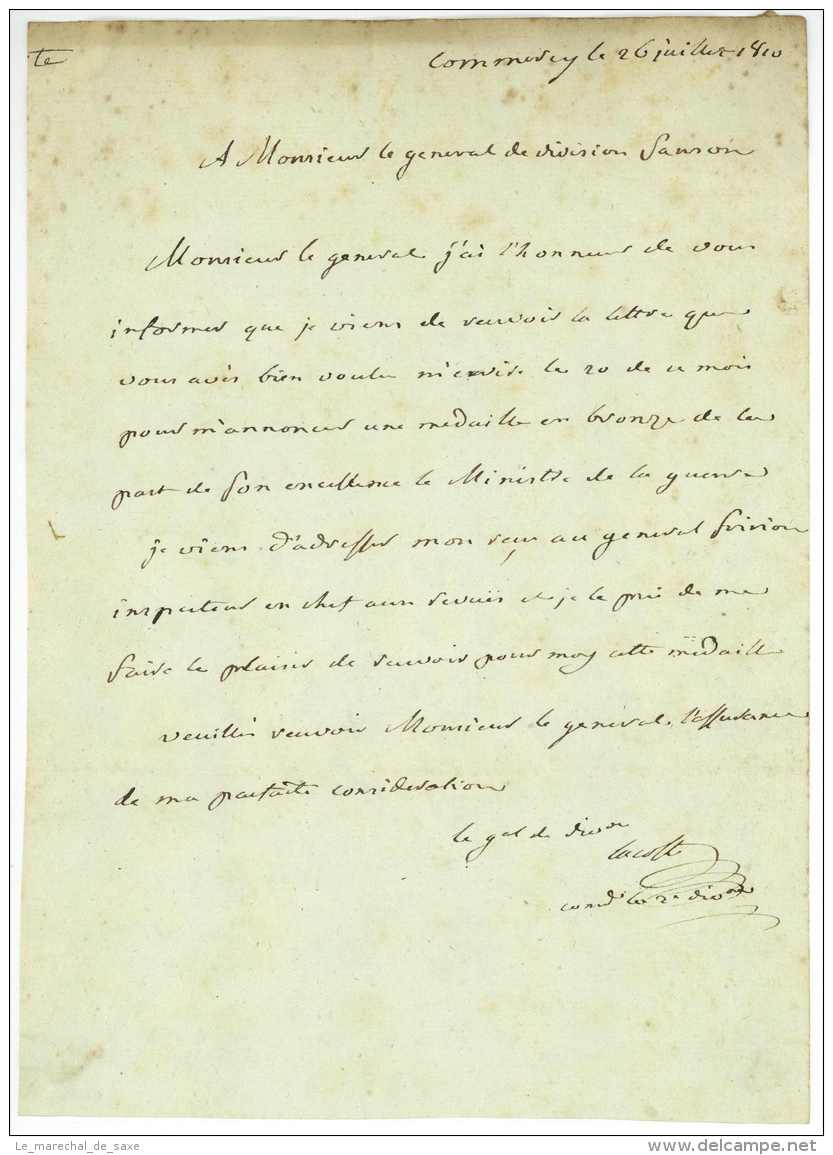 te
Commercy le 26 juillet 1810
A Monsieur le general de division Sanson
Monsieur le general j'ai l'honneur de vous
informer que je viens de recevoir la lettre que
vous avés bien voulu m'ecrire le 20 de ce mois
pour m'annoncer une medaille en bronze de la
part de son excellence le Ministre de la guerre
je viens d'adresser mon recu au general fririon
inspecteur en chef aux revues et je le prie de me
faire le plaisir de recevoir pour moy cette medaille
veuillés recevoir Monsieur le general l'assurance
de ma parfaite consideration
le gal de divon
Lacoste
comdt la 2e divon
Le_marechal_de_saxe
www.delcampe.net